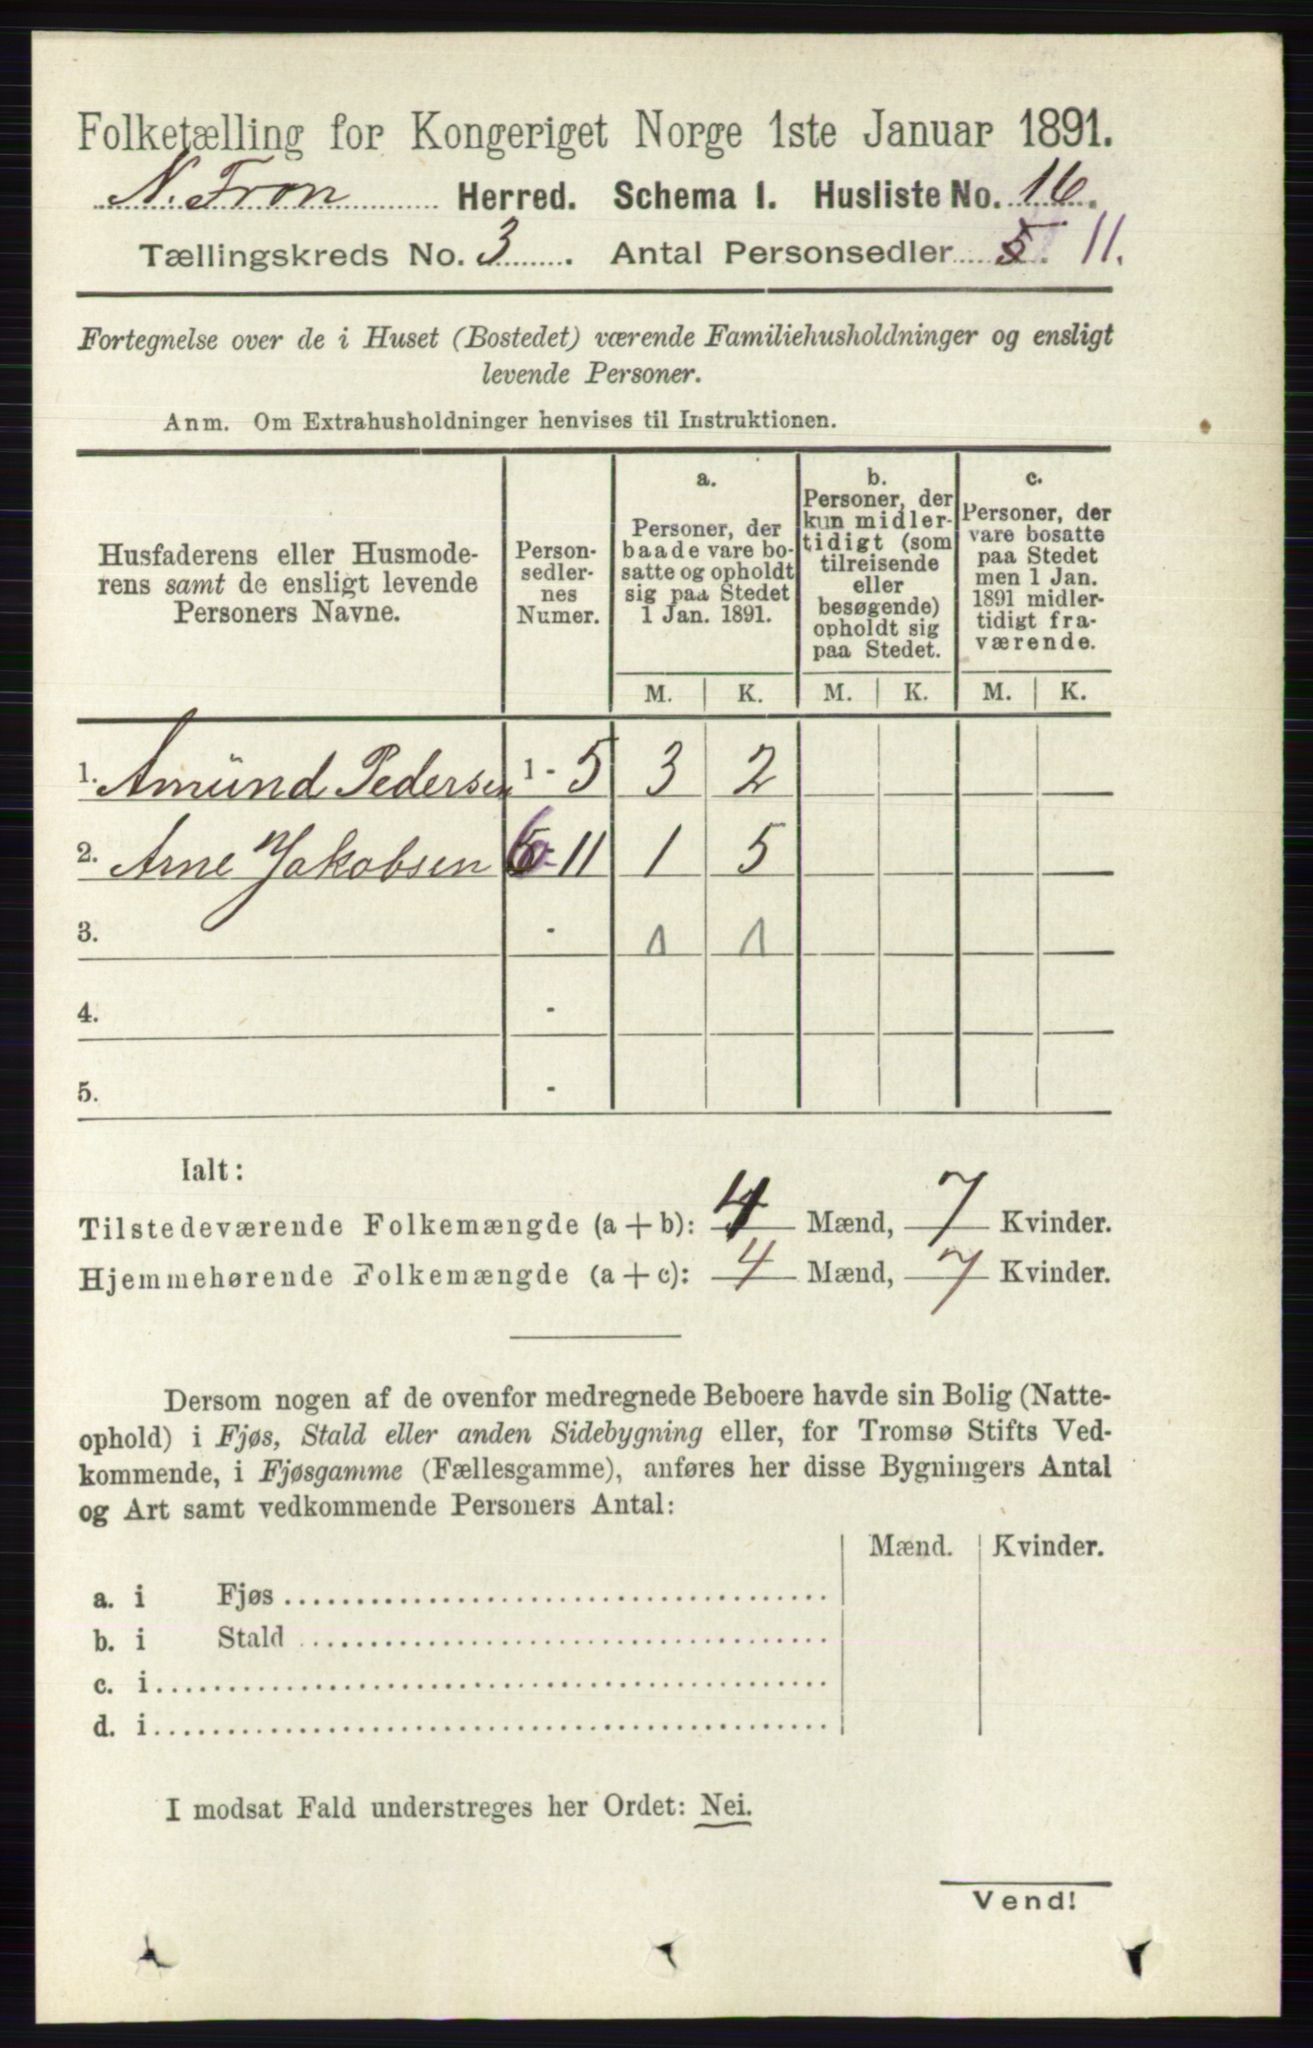 Folketælling for Kongeriget Norge 1ste Januar 1891.
N. Fron Herred. Schema I. Husliste No. 16.
Tællingskreds No. 3. Antal Personsedler 5. 11.
Fortegnelse over de i Huset (Bostedet) værende Familiehusholdninger og ensligt
levende Personer.
Anm. Om Extrahusholdninger henvises til Instruktionen.
Husfaderens eller Husmode-
rens samt de ensligt levende
Personers Navne.
Person-
sedler-
nes
Numer.
a.
Personer, der
baade vare bo-
satte og opholdt
sig paa Stedet
1 Jan. 1891.
b.
Personer, der
kun midler-
tidigt (som
tilreisende
eller
besøgende)
opholdt sig
paa Stedet.
c.
Personer, der
vare bosatte
paa Stedet
men 1 Jan.
1891 midler-
tidigt fra-
værende.
M. K. M. K. M. K.
1. Amünd Pedersen 1 - 5 3 2
2. Arne Jakobsen 6 - 11 1 5
3. - 1 1
4. -
5. -
Ialt:
Tilstedeværende Folkemængde (a + b): 4 Mænd, 7 Kvinder.
Hjemmehørende Folkemængde (a + c): 4 Mænd, 7 Kvinder.
Dersom nogen af de ovenfor medregnede Beboere havde sin Bolig (Natte-
ophold) i Fjøs, Stald eller anden Sidebygning eller, for Tromsø Stifts Ved-
kommende, i Fjøsgamme (Fællesgamme), anføres her disse Bygningers Antal
og Art samt vedkommende Personers Antal:
Mænd. Kvinder.
a. i Fjøs
b. i Stald
c. i
d. i
I modsat Fald understreges her Ordet: Nei.
Vend!